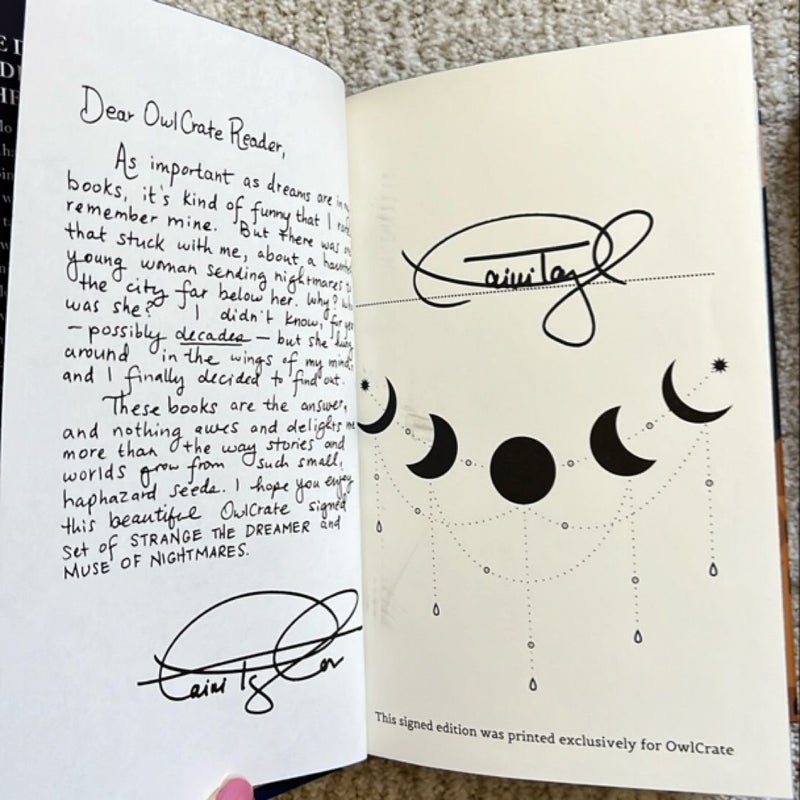 Dear OwlCrate Reader,
As important as dreams are in
books, it's kind of funny that I
remember mine. But there was
that stuck with me, about a
young woman sending nightmares
the city far below her. Why?
was she? I didn't know, for
— possibly decades — but she hung
around in the wings of my mind,
and I finally decided to find out.
These books are the answer,
and nothing awes and delights me
more than the way stories and
worlds grow from such small,
haphazard seeds. I hope you enjoy
this beautiful OwlCrate signed
set of STRANGE THE DREAMER and
MUSE OF NIGHTMARES.
Laini Taylor
Laini Taylor
This signed edition was printed exclusively for OwlCrate